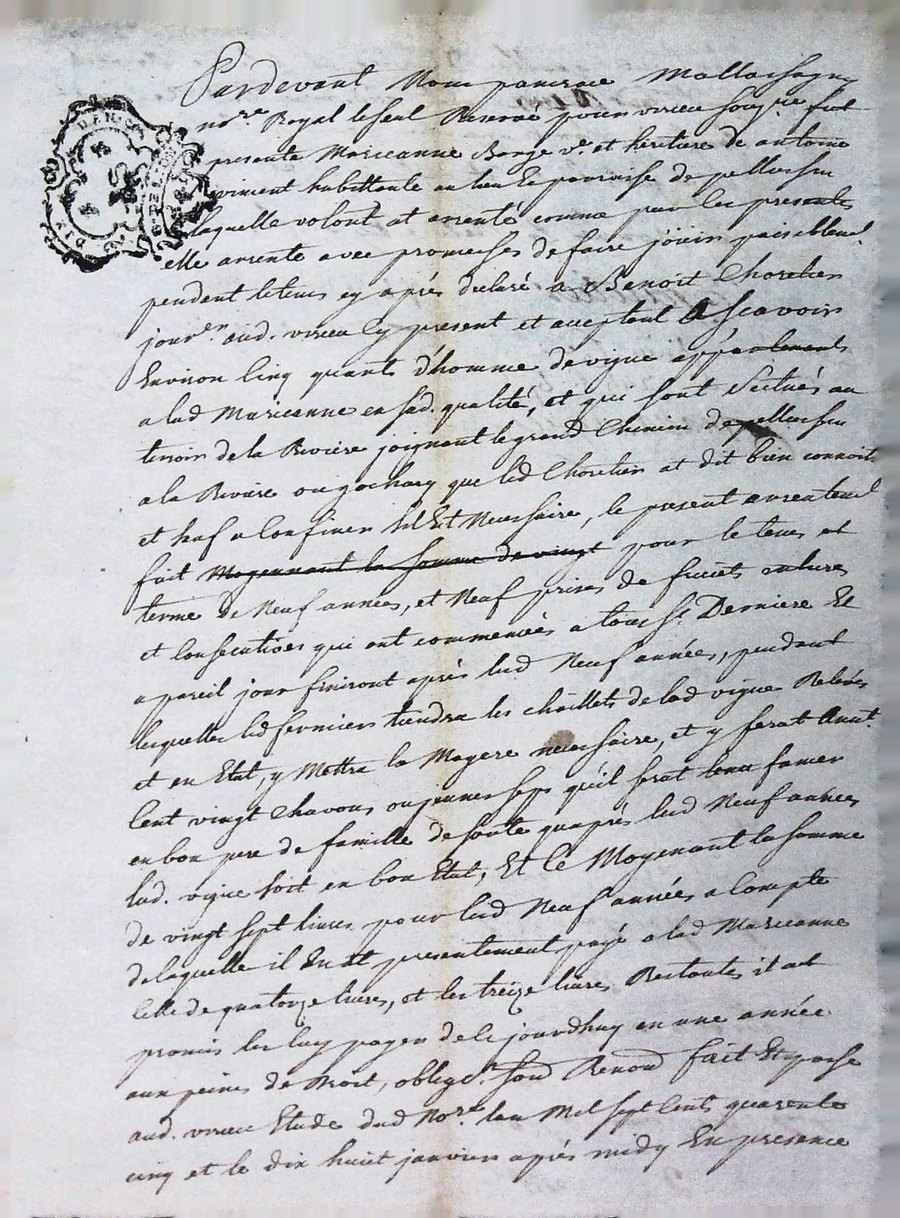 Pardevant Nous
no.re Royal Reservé pour virieu souq.ne fut
presente Marieanne v.e et heritiere de antoine
viment habittante au lieu et parroisse de
laquelle volont. at arrenté comme par les presentes
elle arrente avec promesses de faire jouir paisiblem.t
pendent le tems cy après declaré a Benoit Chorelier
aud. virieu cy present et acceptant Ascavoir
Environ cinq quarts d'homme de vigne appartenent
a lad Marieanne en sad. qualité, et qui sont Scitués au
terroir de la Riviere joignant le grand Chemin de
a la Riviere que led Chorelier at dit bien connoit.
et sauf a confiner sil Est Necessaire, le present arrentem.t
fait Moyennant la somme de vingt pour le tems et
terme de Neuf années, et Neuf prises de fruits
et consecutives qui ont commencées a touss.t Derniere Et
a pareil jour finiront après lesd Neuf années, pendant
lesquelles led fermier tiendra les de lad vigne Relevés
et en Etat, y Mettra la necessaire, et y ferat
Cent vingt chavous ou jeunes seps qu'il serat tenu
en bon pere de famille de sorte quaprès lesd Neuf années
lad. vigne soit en bon Etat, Et Ce Moyenant la somme
de vingt sept livres pour lesd Neuf années a Compte
de laquelle il En at presentement payé a lad Marieanne
Celle de quatorze livres, et les treize livres Restantes il at
promis les luy payer de ce jourdhuy en une année
aux peines de Droit, oblige.t soub. Renon.d fait Et passé
aud. virieu Etude dud No.re lan Mil sept Cents quarente
cinq et le dix huict janvier après midy En presence